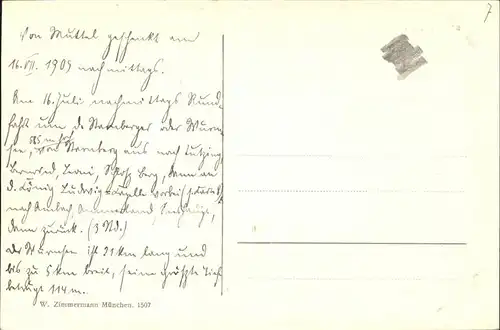 Von Muttel geschenkt am
16.VII. 1909 nachmittags.
Am 16. Juli nachmittags Rund-
fahrt um d. Starnberger oder Würm-
585 m h.
see, von Starnberg aus nach Tutzing
Bernried, Leoni, Schloß Berg, dann an
d. König Ludwig-Kapelle vorbei
nach Ambach, Ammerland, Seeshaupt,
dann zurück. (3 Std.)
Der Würmsee ist 21 km lang und
bis zu 5 km breit, seine größte Tiefe
beträgt 114 m.
W. Zimmermann München. 1507
7